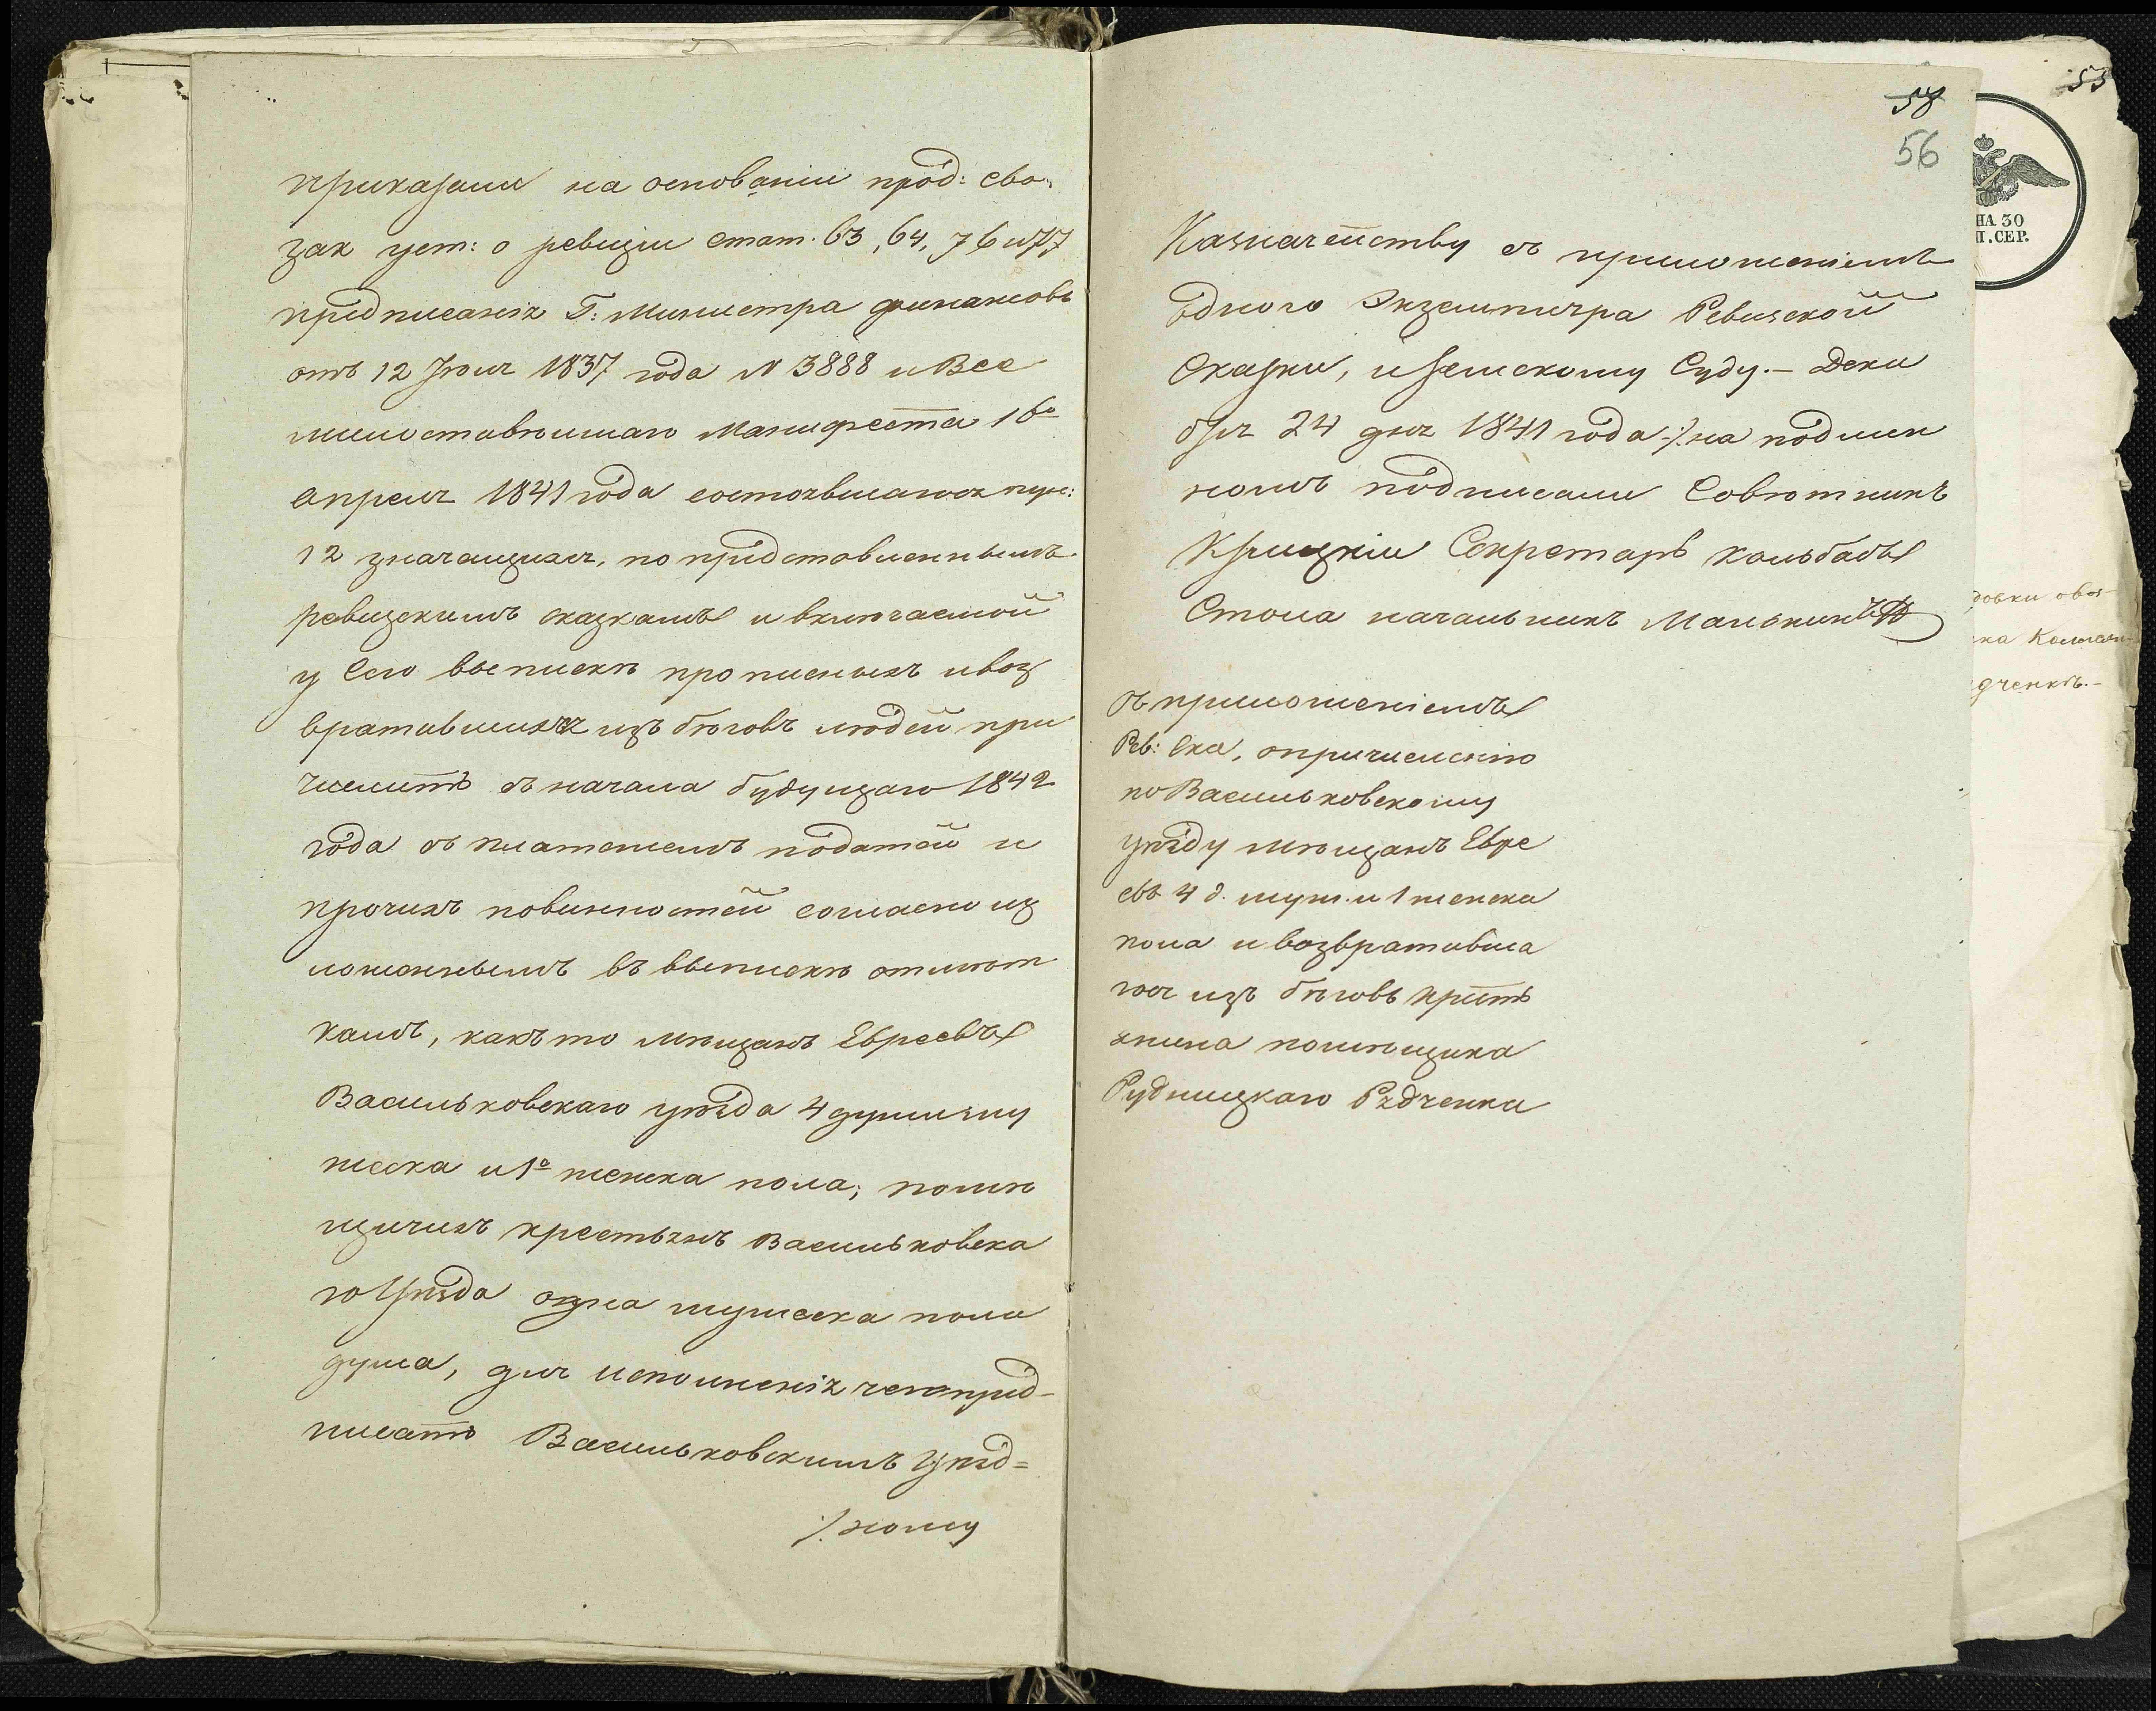 приказали на основаніи прод: сво:
зак уст: о ревизіи стат. 63, 64, 76 и 77
предписанія Г. Министра финансовъ
отъ 12 Іюля 1837 года № 3888 и Все
милостивѣйшаго Манифеста 16го
апреля 1841 года состоявшагося пунк:
12 значащихся, по представленнымъ
ревизскимъ сказкамъ и включаемой
у сего выпискѣ прописныхъ и воз
вратившихся изъ бѣговъ людей при
числить съ начала будущаго 1842
года съ платежемъ податей и
прочихъ повинностей согласно из
ложеннымъ въ выпискѣ отмѣт
камъ, какъ то мѣщанъ Евреевъ
Васильковскаго уѣзда 4 души му
жеска и 1а женска пола; помѣ
щичихъ крестьянъ Васильковска
го Уѣзда одна мужеска пола
душа, для исполненія чего пред-
писать Васильковскимъ Уѣзд=
/. ному
58
56
Казначейству съ приложеніемъ
одного Экземпляра Ревизской
Сказки, и земскому Суду. — Дека
бря 24 дня 1841 года ./. на подлин
номъ подписали Совѣтникъ
Секретарь
Стола начальникъ
съ приложеніемъ
Рев: Ска, о причисленію
по Васильковскому
уѣзду мѣщанъ Евре
евъ 4 д. муж. и 1 женска
пола и возвратившa
гося изъ бѣговъ крѣсть
янина помѣщика
Рудницкаго Рядченка
55
НА 30
П. СЕР.
дченкѣ.-